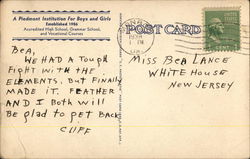 A Piedmont Institution For Boys and Girls
Established 1906
Accredited High School, Grammar School,
and Vocational Courses
POST CARD
1 PM
Bea,
We had a tough
fight with the
elements, but finally
made it. Feather
and I both will
be glad to get back
Cliff
Miss Bea Lance
White House
New Jersey